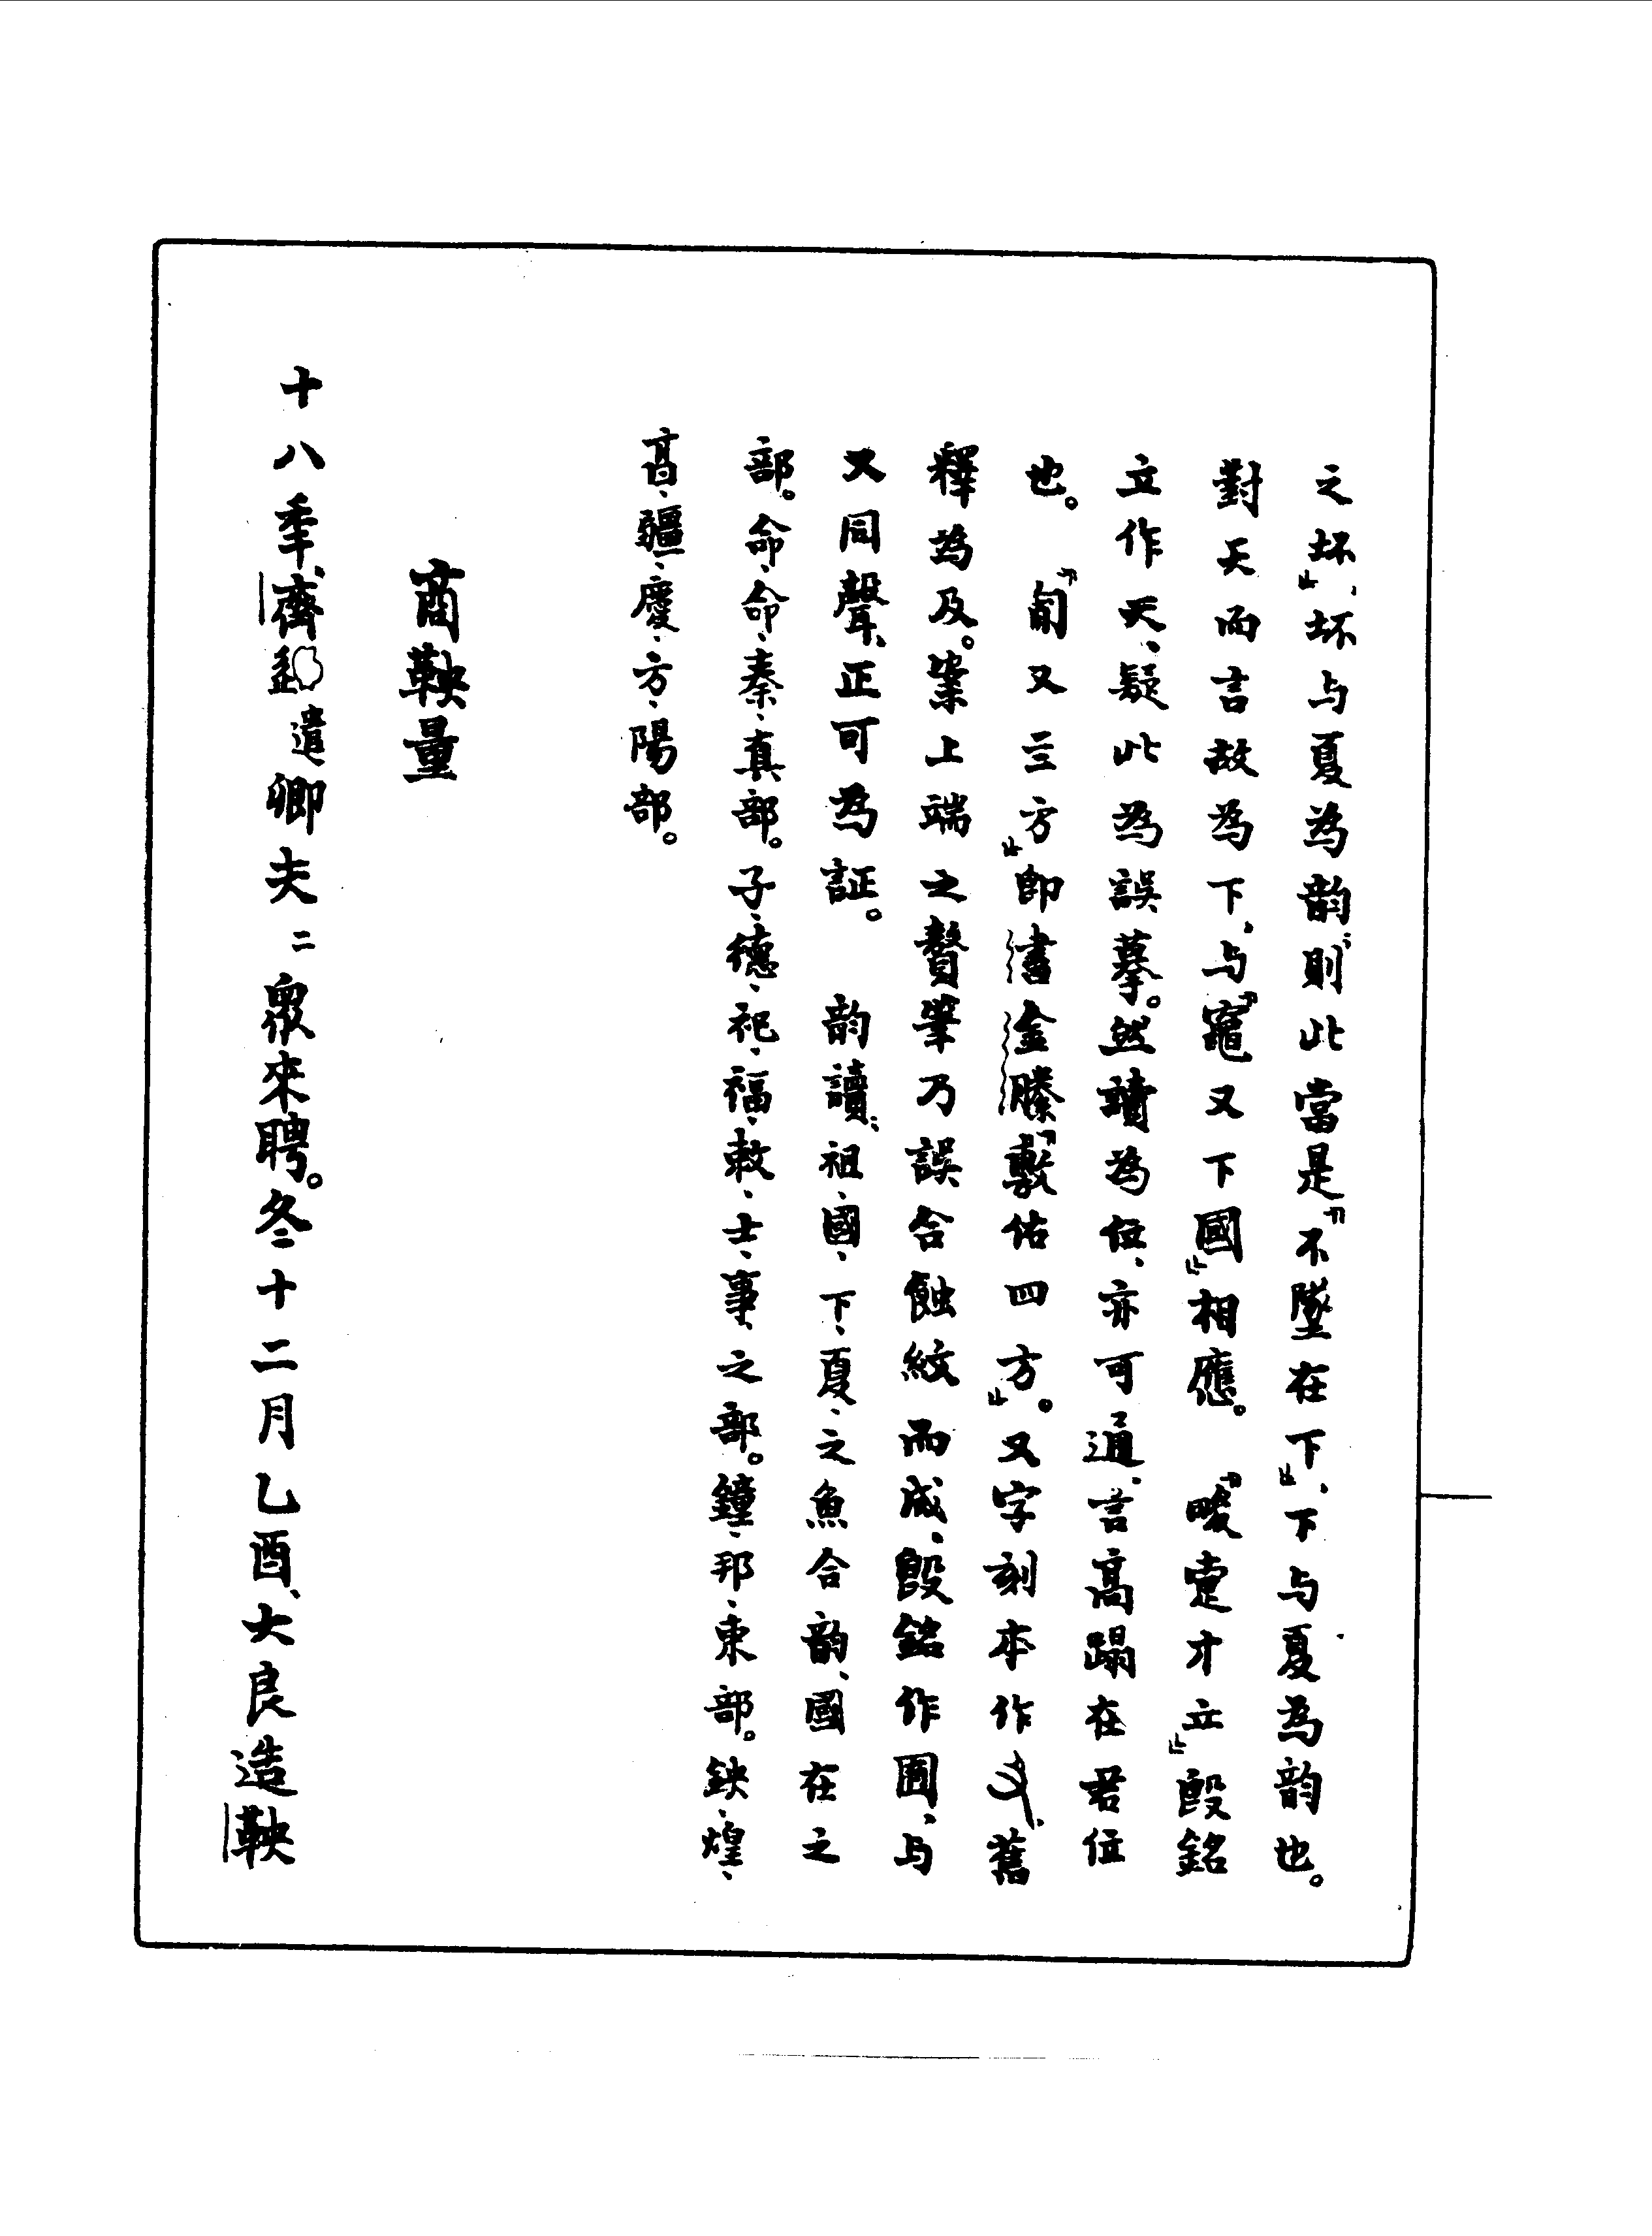 之坏」、坏与夏為韵；則此當是「不墜在下」、下与夏為韵也。
對天而言故為下、与『竈又下國』相應。『畯疐才立』𣪘銘
立作天、疑此為誤摹。然讀為位、亦可通、言高蹋在君位
也。「匍又三方」即書金縢「敷佑四方」。又字刻本作、舊
釋為及。案上端之贅筆乃誤合蝕紋而成、𣪘銘作囿、与
又同聲、正可為証。韵讀；祖、國、下、夏、之魚合韵、國在之
部。命、命、秦、真部。子、德、祀、福、敕、士、事、之部。鐘、邦、東部。鉠、煌、
亯、疆、慶、方、陽部。
商鞅量
十八秊、齊遣卿夫二眾來聘。冬十二月乙酉、大良造鞅